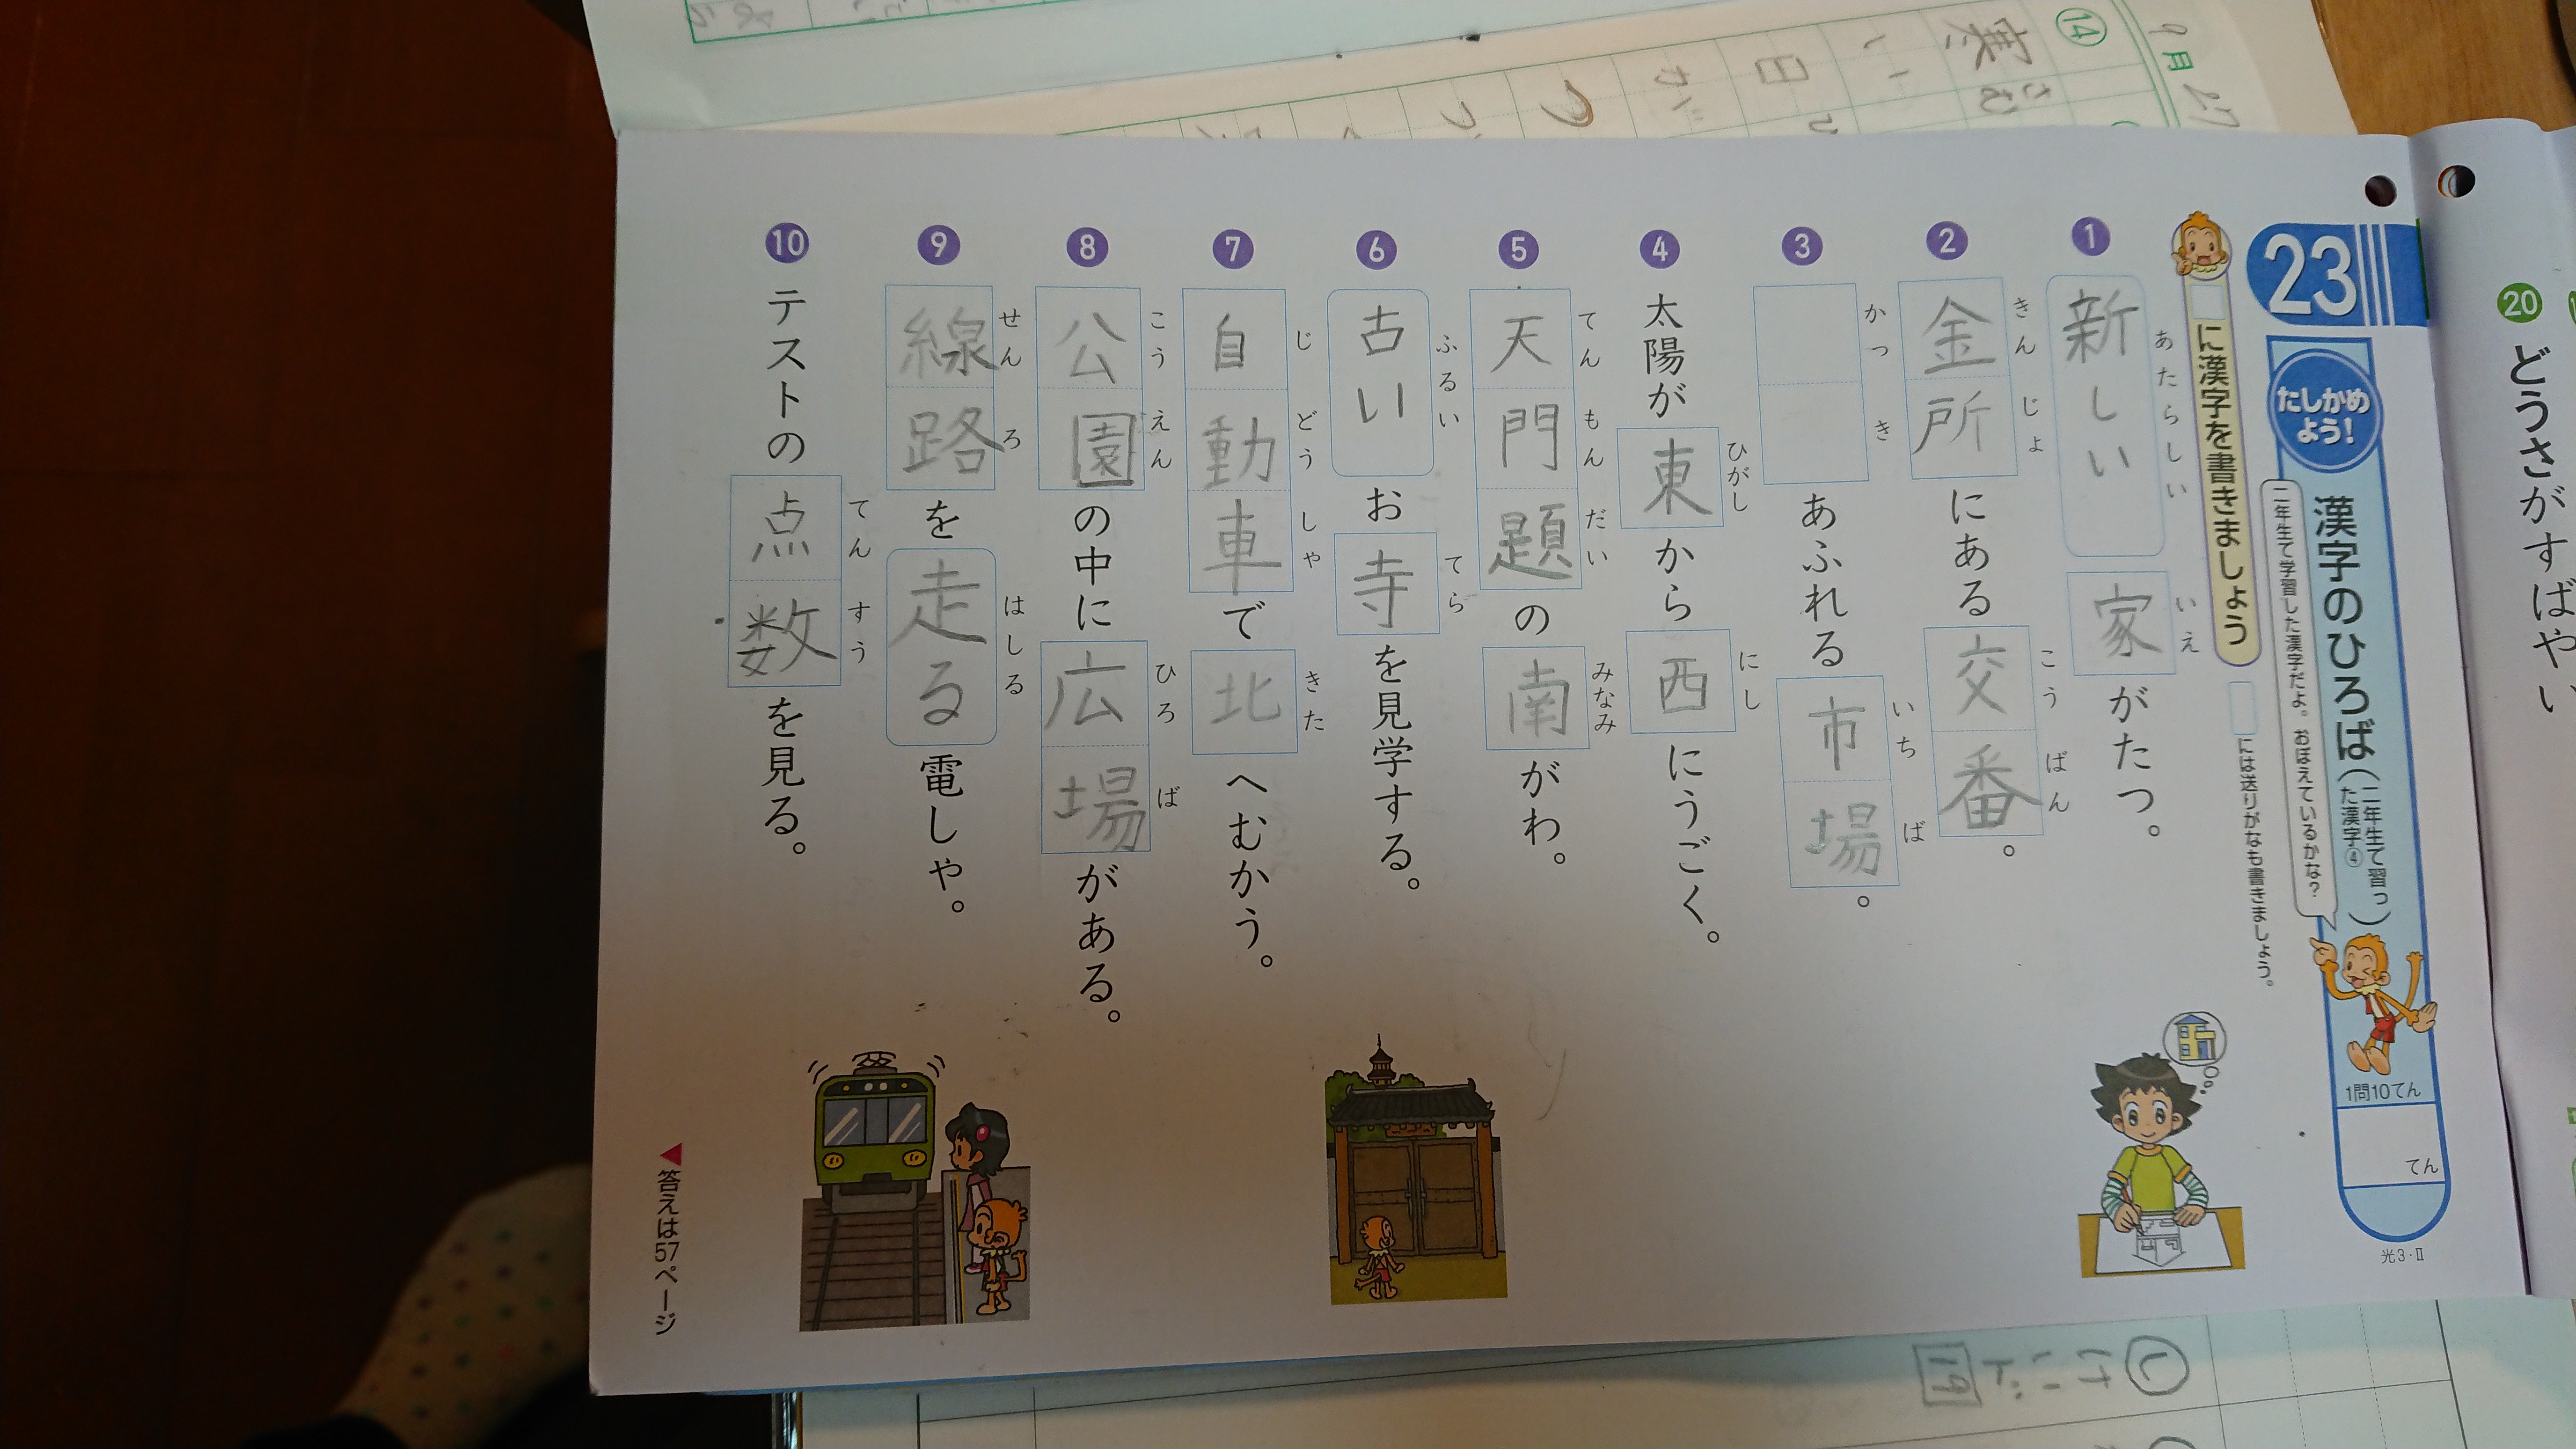 23
たしかめよう!
漢字のひろば(二年生で習った漢字④)
二年生で学習した漢字だよ。おぼえているかな?
1問10てん
てん
光3・Ⅱ
に漢字を書きましょう
には送りがなも書きましょう。
1 新しい家がたつ。
あたらしい いえ
2 金所にある交番。
きんじょ こうばん
3 あふれる市場。
かっき いちば
4 太陽が東から西にうごく。
ひがし にし
5 天門題の南がわ。
てんもんだい みなみ
6 古いお寺を見学する。
ふるい てら
7 自動車で北へむかう。
じどうしゃ きた
8 公園の中に広場がある。
こうえん ひろば
9 線路を走る電しゃ。
せんろ はしる
10 テストの点数を見る。
てんすう
答えは57ページ
20 どうさがすばやい
9月27
14
寒い日が
さむ ひ